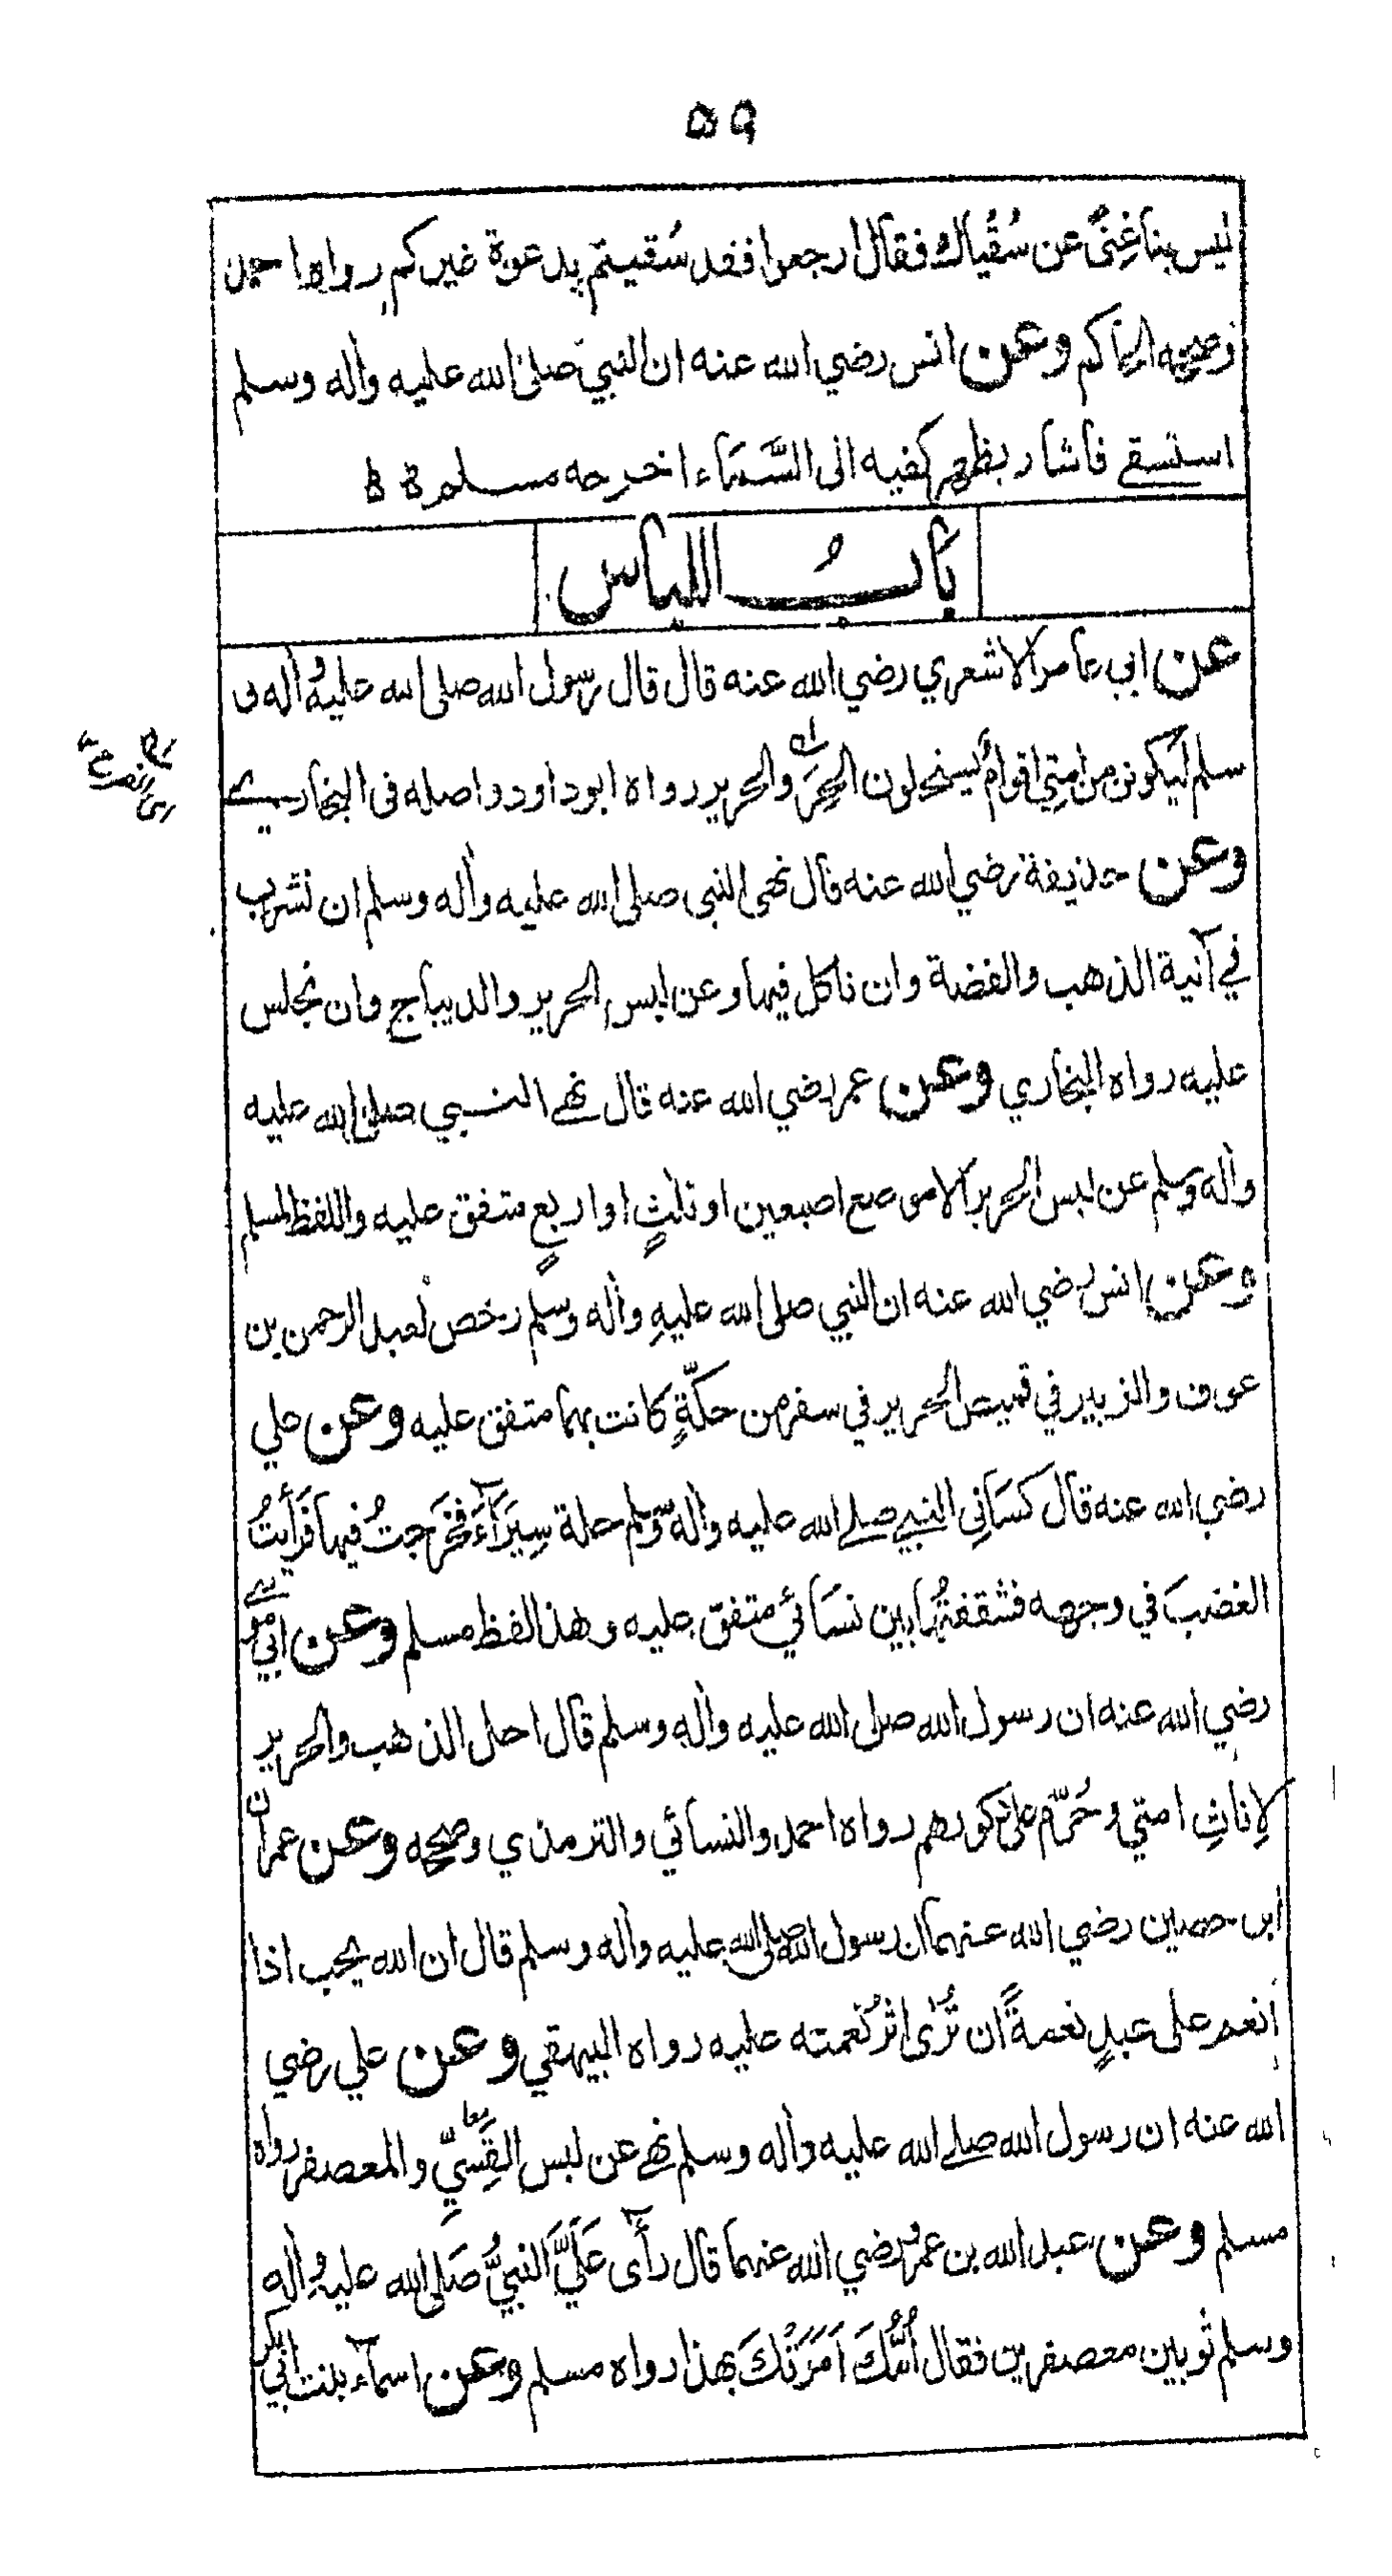 ۵۹
ليس بنا غِنىً عن سُقْياك فقال ارجعوا فقد سُقيتم بدعوة غيركم رواه احمد
وصححه الحاكم وعن انس رضي الله عنه ان النبي صلى الله عليه واٰله وسلم
استسقے فاشار بظهر كفيه الى السَّمَاء اخرجه مسلم
بَابُ اللباس
عن ابي عامر الاشعري رضي الله عنه قال قال رسول الله صلى الله عليه واٰله و
سلم لَيكونن من امتي اقوامٌ يستحلون الحِرَ والحرير رواه ابو داود واصله فى البخاري
وعن حذيفة رضي الله عنه قال نهى النبي صلى الله عليه واٰله وسلم ان نشرب
في آنية الذهب والفضة وان ناكل فيها وعن لبس الحرير والديباج وان نجلس
عليه رواه البخاري وعن عمر رضي الله عنه قال نهے النبي صلى الله عليه
واٰله وسلم عن لبس الحرير الا موضع اصبعين او ثلٰثٍ او اربعٍ متفق عليه واللفظ لمسلم
وعن انس رضي الله عنه ان النبي صلى الله عليهِ واٰله وسلم رخص لعبد الرحمن بن
عوف والزبير في قميص الحرير في سفر من حكّةٍ كانت بهما متفق عليه وعن علي
رضي الله عنه قال كسَاني النبي صلے الله عليه واٰله وسلم حلة سِيَرَآءَ فخَرجتُ فيها فَرَأيتُ
الغضبَ في وجهه فشققتُها بين نسَائي متفق عليه وهذا لفظ مسلم وعن ابي موسے
رضي الله عنه ان رسول الله صلى الله عليه واٰله وسلم قال احل الذهب والحرير
لاِناثِ امتي وحُرّم على ذكورهم رواه احمد والنسائي والترمذي وصححه وعن عمران
ابن حصين رضي الله عنهما ان رسول الله صلى الله عليه واٰله وسلم قال ان الله يحب اذا
انعم على عبدٍ نعمةً ان تُرٰى اثرُ نعمته عليه رواه البيهقي وعن علي رضي
الله عنه ان رسول الله صلے الله عليه واٰله وسلم نهے عن لبس القَسِّيِّ والمعصفر رواه
مسلم وعن عبد الله بن عمرو رضي الله عنهما قال رأى عَلَيَّ النبيُّ صَلى الله عليه واٰله
وسلم ثوبين معصفرين فقال اُمُّكَ اَمَرَتْكَ بهذا رواه مسلم وعن اسمآء بنت ابي بكر